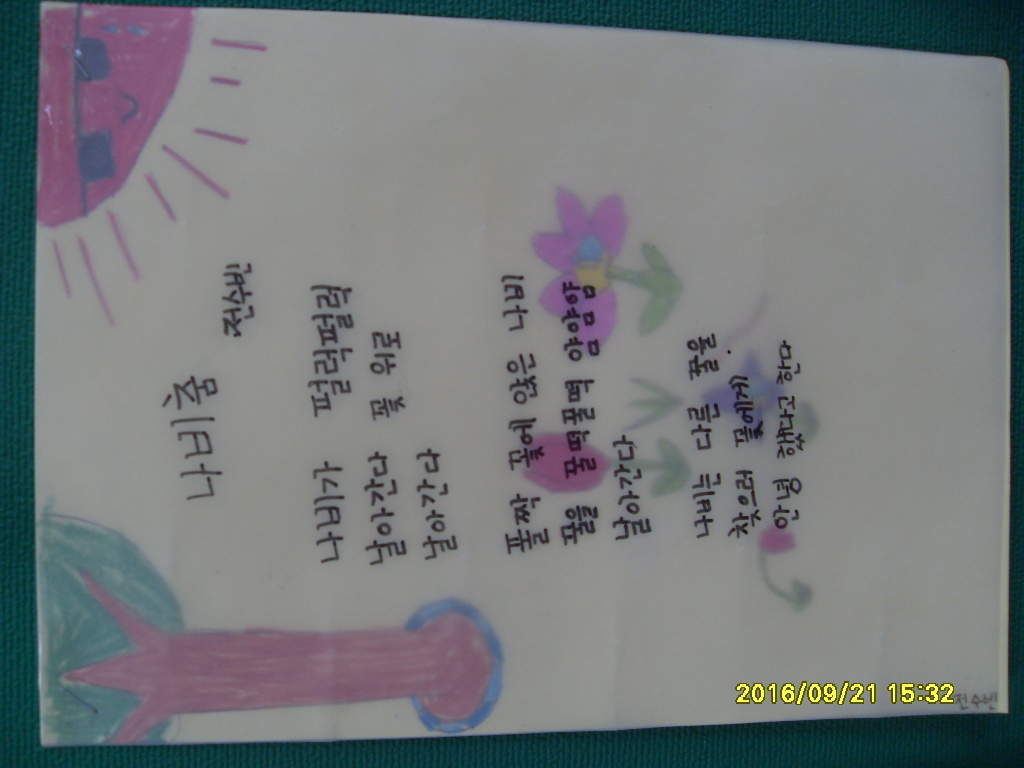 나비춤
전수빈
나비가 펄럭펄럭
날아간다 꽃 위로
날아간다
폴짝 꽃에 앉은 나비
꿀을 꿀떡꿀떡 얌얌얌
날아간다
나비는 다른 꿀을
찾으러 꽃에게
안녕 했다고 한다
전수빈
2016/09/21 15:32